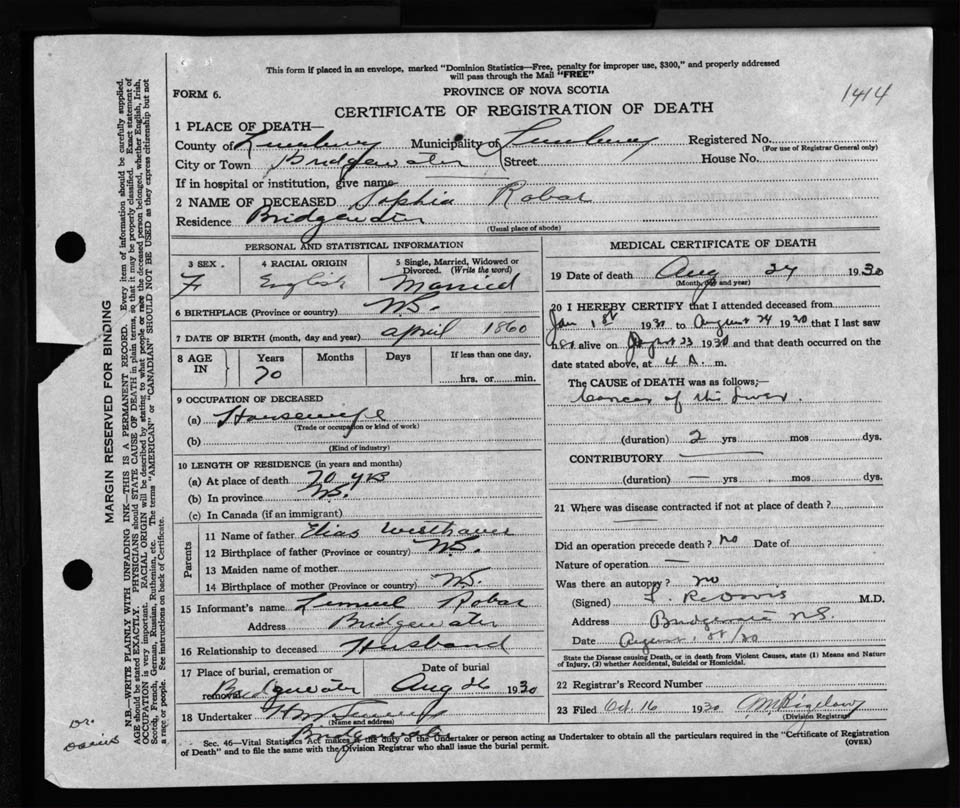 This form if placed in an envelope, marked "Dominion Statistics—Free, penalty for improper use, $300," and properly addressed
will pass through the Mail "FREE"
FORM 6.
PROVINCE OF NOVA SCOTIA
1414
CERTIFICATE OF REGISTRATION OF DEATH
1 PLACE OF DEATH—
County of Lunenburg Municipality of Lunenburg Registered No.
(For use of Registrar General only)
City or Town Bridgewater Street House No.
If in hospital or institution, give name
2 NAME OF DECEASED Sophia Robar
Residence Bridgewater
(Usual place of abode)
PERSONAL AND STATISTICAL INFORMATION
3 SEX. F
4 RACIAL ORIGIN English
5 Single, Married, Widowed or Divorced. (Write the word) Married
6 BIRTHPLACE (Province or country) N.S.
7 DATE OF BIRTH (month, day and year) April 1860
8 AGE IN Years 70 Months Days If less than one day, hrs. or min.
9 OCCUPATION OF DECEASED
(a) Housewife
(Trade or occupation or kind of work)
(b)
(Kind of industry)
10 LENGTH OF RESIDENCE (in years and months)
(a) At place of death 70 yrs
(b) In province N.S.
(c) In Canada (if an immigrant)
Parents
11 Name of father Elias Wilkhauer
12 Birthplace of father (Province or country) N.S.
13 Maiden name of mother
14 Birthplace of mother (Province or country) N.S.
15 Informant's name Lemuel Robar
Address Bridgewater
16 Relationship to deceased Husband
17 Place of burial, cremation or removal Bridgewater
Date of burial Aug 26 1930
18 Undertaker
(Name and address)
Bridgewater
MEDICAL CERTIFICATE OF DEATH
19 Date of death Aug 24 1930
(Month, day and year)
20 I HEREBY CERTIFY that I attended deceased from
Jan 1st 1930 to August 24 1930 that I last saw
her alive on August 23 1930 and that death occurred on the
date stated above, at 4 A. m.
The CAUSE of DEATH was as follows;—
Cancer of the Liver.
(duration) 2 yrs mos dys.
CONTRIBUTORY —
(duration) — yrs. mos dys.
21 Where was disease contracted if not at place of death? —
Did an operation precede death? no Date of
Nature of operation —
Was there an autopsy? no
(Signed) M.D.
Address Bridgewater N.S.
Date August
State the Disease causing Death, or in death from Violent Causes, state (1) Means and Nature
of Injury, (2) whether Accidental, Suicidal or Homicidal.
22 Registrar's Record Number
23 Filed Oct. 16 1930 M Bigelow
(Division Registrar)
Sec. 46—Vital Statistics Act makes it the duty of the Undertaker or person acting as Undertaker to obtain all the particulars required in the "Certificate of Registration
of Death" and to file the same with the Division Registrar who shall issue the burial permit.
(OVER)
MARGIN RESERVED FOR BINDING
N.B.—WRITE PLAINLY WITH UNFADING INK—THIS IS A PERMANENT RECORD. Every item of information should be carefully supplied.
AGE should be stated EXACTLY. PHYSICIANS should STATE CAUSE OF DEATH in plain terms, so that it may be properly classified. Exact statement of
OCCUPATION is very important. RACIAL ORIGIN will be described by stating to what people or race the deceased person belonged, whether English, Irish,
Scotch, French, German, Russian, Ruthenian, etc. The terms "AMERICAN" or "CANADIAN" SHOULD NOT BE USED as they express citizenship but not
a race or people. See instructions on back of Certificate.